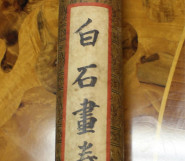 白石畫卷